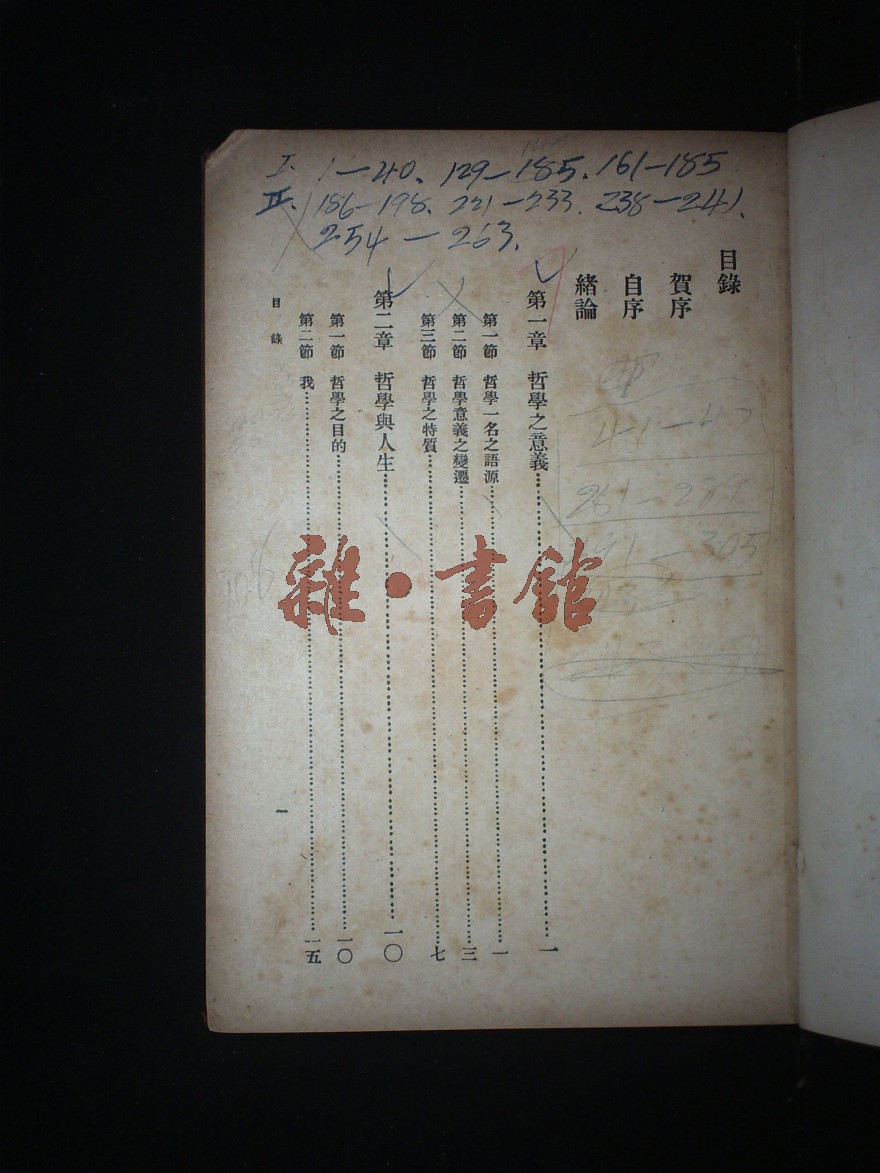 I. 1—40、129—185、161—185
II. 186—198、221—233、238—241、
254—263.
目錄
賀序
自序
緒論
第一章 哲學之意義……一
第一節 哲學一名之語源……一
第二節 哲學意義之變遷……三
第三節 哲學之特質……七
第二章 哲學與人生……一〇
第一節 哲學之目的……一〇
第二節 我……一五
目錄
一
雜·書館